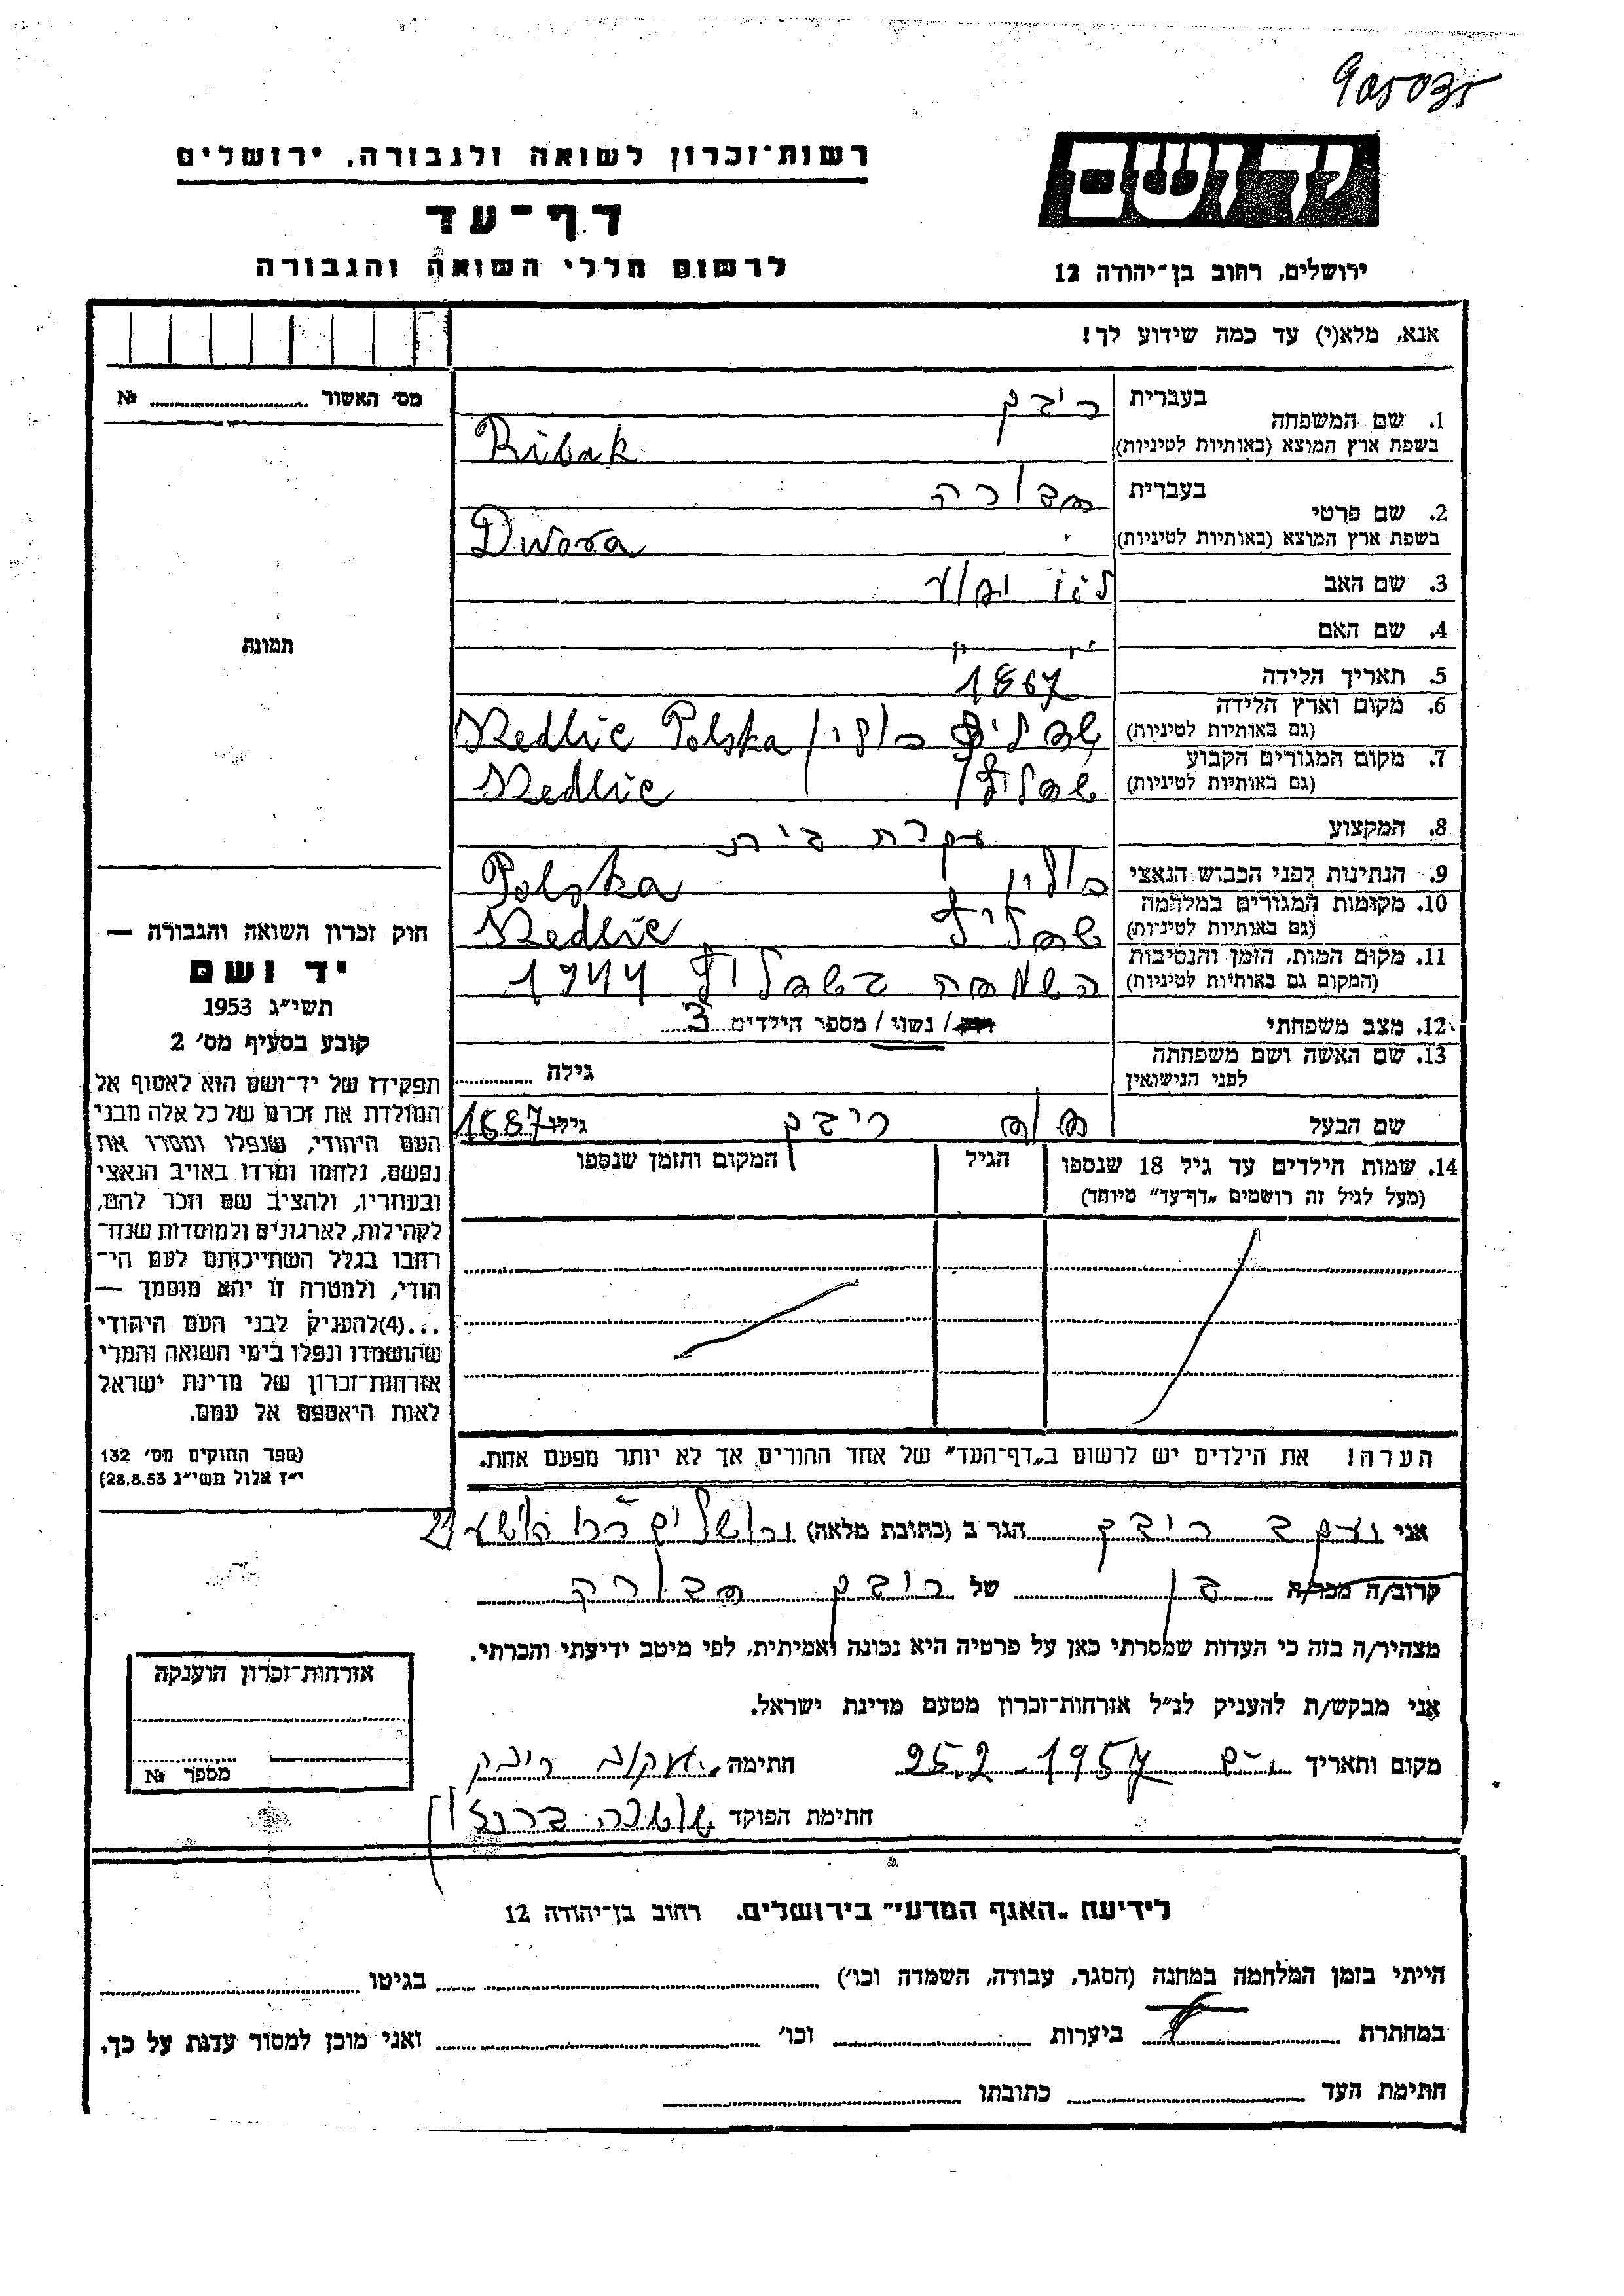 905035
רשות־זכרון לשואה ולגבורה, ירושלים
יד ושם
דף־עד
לרשום חללי השואה והגבורה
ירושלים, רחוב בן־יהודה 12
אנא, מלא(י) עד כמה שידוע לך!
מס' האשור № 
1. שם המשפחה בעברית ריבק
בשפת ארץ המוצא (באותיות לטיניות) Ribak
2. שם פרטי בעברית דבורה
בשפת ארץ המוצא (באותיות לטיניות) Dwora
3. שם האב לא ידוע
4. שם האם " "
5. תאריך הלידה 1867
6. מקום וארץ הלידה (גם באותיות לטיניות) שדליץ פולין Sedlic Polska
7. מקום המגורים הקבוע (גם באותיות לטיניות) שדליץ Sedlic
8. המקצוע עקרת בית
9. הנתינות לפני הכבוש הנאצי פולין Polska
10. מקומות המגורים במלחמה (גם באותיות לטיניות) שדליץ Sedlic
11. מקום המות, הזמן והנסיבות (המקום גם באותיות לטיניות) השמדה בשדליץ 1944
12. מצב משפחתי רוק / נשוי / מספר הילדים 3
13. שם האשה ושם משפחתה לפני הנישואין גילה
שם הבעל ריבק גילו
14. שמות הילדים עד גיל 18 שנספו (מעל לגיל זה רושמים „דף־עד" מיוחד)
הגיל
המקום והזמן שנספו
הערה! את הילדים יש לרשום ב„דף־העד" של אחד ההורים אך לא יותר מפעם אחת.
תמונה
חוק זכרון השואה והגבורה —
יד ושם
תשי"ג 1953
קובע בסעיף מס' 2
תפקידו של יד־ושם הוא לאסוף אל
המולדת את זכרם של כל אלה מבני
העם היהודי, שנפלו ומסרו את
נפשם, נלחמו ומרדו באויב הנאצי
ובעוזריו, ולהציב שם וזכר להם,
לקהילות, לארגונים ולמוסדות שנח־
רבו בגלל השתייכותם לעם הי־
הודי, ולמטרה זו יהא מוסמך —
...(4)להעניק לבני העם היהודי
שהושמדו ונפלו בימי השואה והמרי
אזרחות־זכרון של מדינת ישראל
לאות היאספם אל עמם.
(ספר החוקים מס' 132
י"ז אלול תשי"ג 28.8.53)
אני יעקב ריבק הגר ב (כתובת מלאה) ירושלים
קרוב/ה מכר/ה בן של ריבק דבורה
מצהיר/ה בזה כי העדות שמסרתי כאן על פרטיה היא נכונה ואמיתית, לפי מיטב ידיעתי והכרתי.
אני מבקש/ת להעניק לנ"ל אזרחות־זכרון מטעם מדינת ישראל.
מקום ותאריך 25.2.1957 חתימה יעקב ריבק
חתימת הפוקד
אזרחות־זכרון הוענקה
מספר №
לידיעת „האגף המדעי" בירושלים, רחוב בן־יהודה 12
הייתי בזמן המלחמה במחנה (הסגר, עבודה, השמדה וכו') בגיטו
במחתרת ביערות וכו' ואני מוכן למסור עדות על כך.
חתימת העד כתובתו